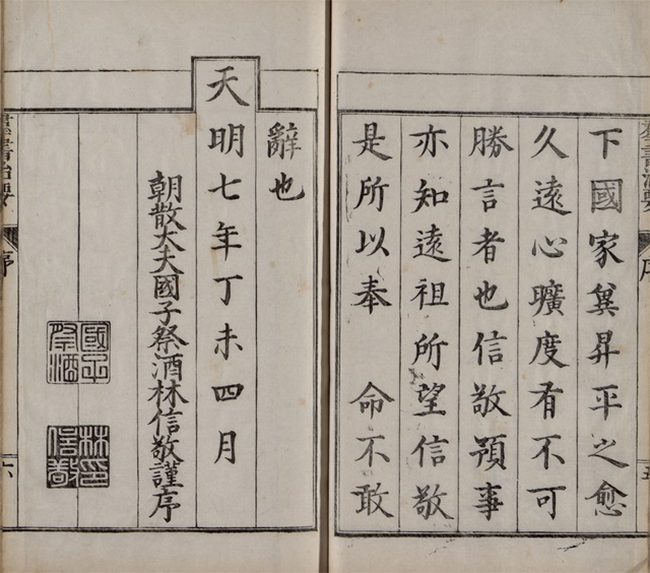 下國家冀昇平之愈
久遠心曠度有不可
勝言者也信敬預事
亦知遠祖所望信敬
是所以奉　命不敢
辭也
天明七年丁未四月
朝散太夫國子祭酒林信敬謹序
國子祭酒
林印信敬
羣書治要
序
六